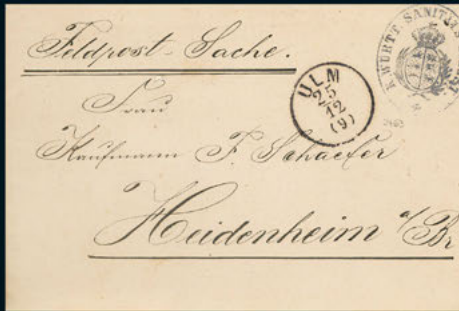 Feldpost-Sache.
K. WÜRTT. SANITÄTS
ULM
25
12
(9)
Frau
Kaufmann F. Schaefer
Heidenheim a/Br